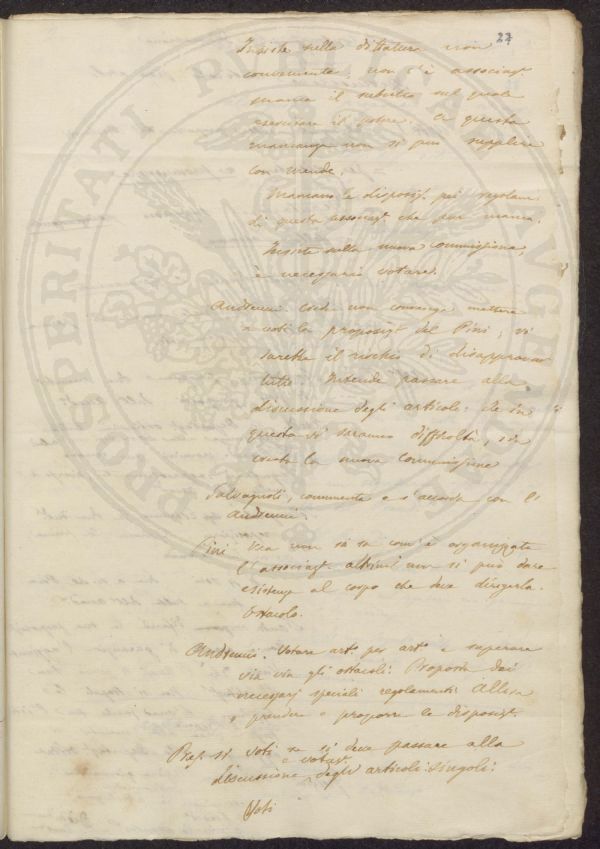 27
Insiste sulla dittatura non
conveniente, non c'è associaz.
manca il subietto sul quale
esercitare il potere. A questa
mancanza non si può supplire
con
Mancano le disposiz. più regolari
di questa associaz. che pur manca.
Insiste sulla nuova commissione,
è necessario votare.
Andreucci. Crede non convenga mettere
a voti la proposiz. del Pini, vi
sarebbe il rischio di disapprovar
tutto. Intende passare alla
discussione degli articoli: Se in
questa vi saranno difficoltà, si
la nuova Commissione
Salvagnoli, commenta e s'accorda con l'
Andreucci.
Pini Ma non si sa com'è organizzata
l'associaz. altrim. non si può dare
esistenza al corpo che deve dirigerla.
Ostacolo.
Andreucci. Votare art. per art. e superare
via via gli ostacoli: Proposta dei
necessarj speciali regolamenti. Allora
a prendere e proporre le disposiz.
Pres. Si voti se si deve passare alla
e votaz.
discussione degli articoli singoli:
Voti
PROSPERITATI PUBLICAE AUGENDAE